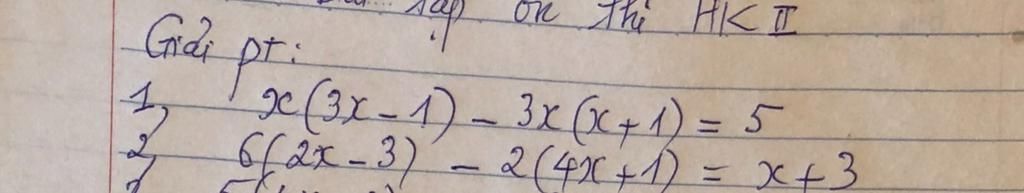 tập ôn thi HK II
Giải pt:
1, x(3x - 1) - 3x(x + 1) = 5
2, 6(2x - 3) - 2(4x + 1) = x + 3